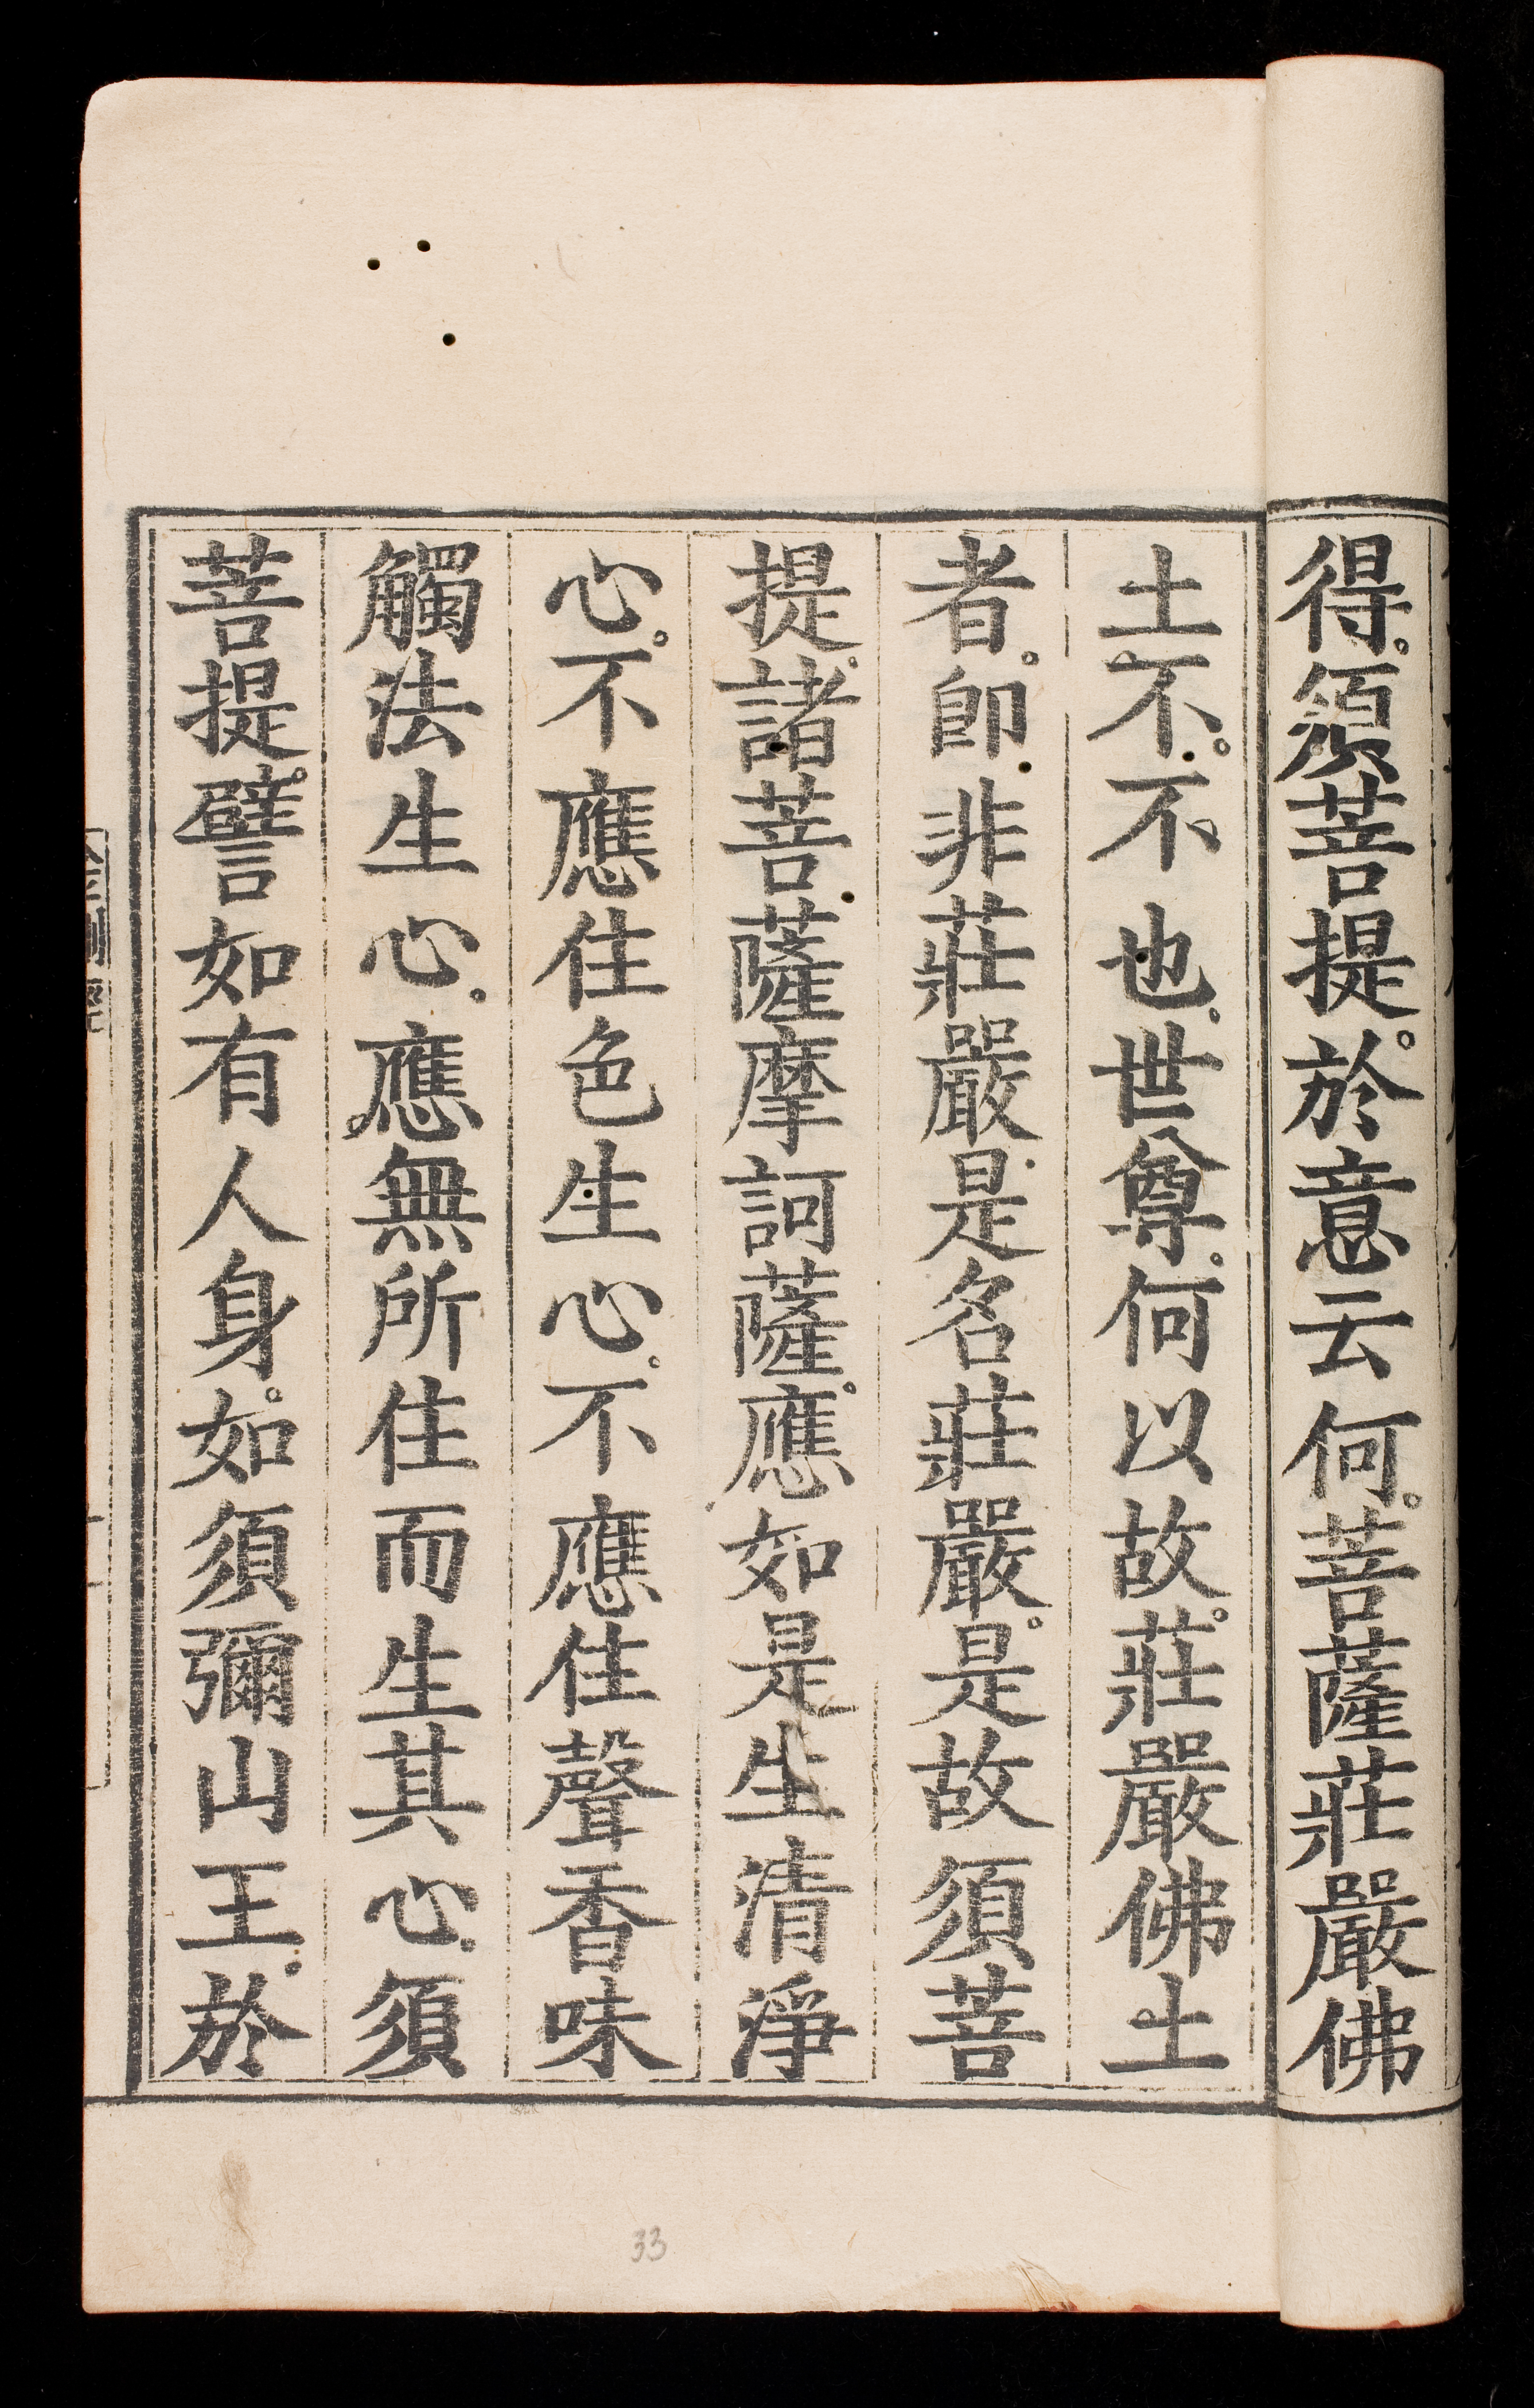 得。須菩提。於意云何。菩薩莊嚴佛
土不。不也。世尊。何以故。莊嚴佛土
者。卽非莊嚴。是名莊嚴。是故須菩
提。諸菩薩摩訶薩。應如是生清淨
心。不應住色生心。不應住聲香味
觸法生心。應無所住而生其心。須
菩提。譬如有人身。如須彌山王。於
33